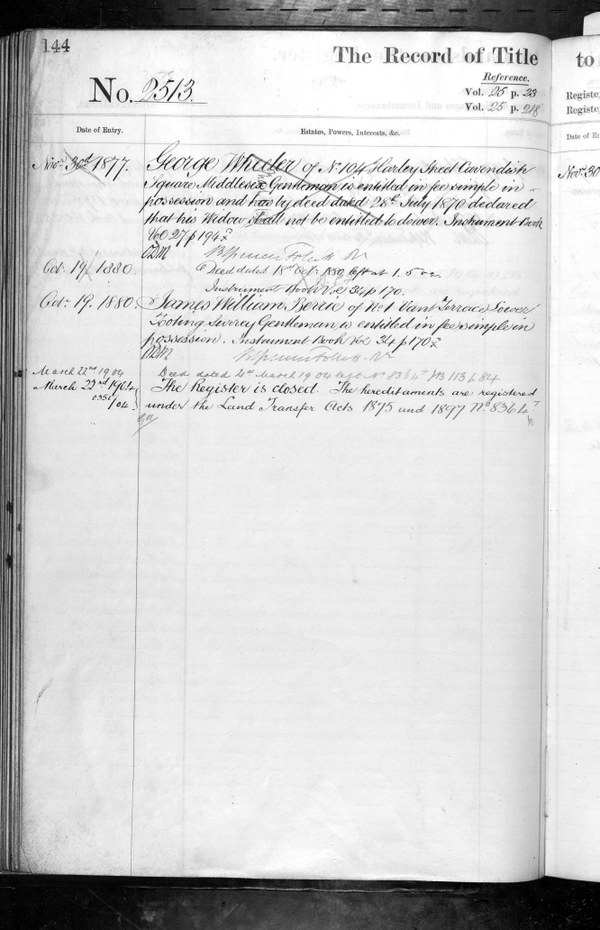 144
The Record of Title
to
No. 2513.
Reference.
Vol. 25 p. 23
Vol. 25 p. 218
Registe
Registe
Date of Entry.
Estates, Powers, Interests, &c.
Date of En
Novr. 30th 1877.
George Wheeler of No 104 Harley Street Cavendish
Square Middlesex Gentleman is entitled in fee simple in
possession and has by deed dated 28th July 1870 declared
that his Widow shall not be entitled to dower. Instrument Book
Vol 27 p 194
Novr 30
Oct. 19. 1880.
Deed dated 18th Octr. 1880 left at 1. 5
Instrument Book Vol 34 p 170.
Octr. 19. 1880.
James William Berrie of No 1 Vant Terrace Lower
Tooting Surrey Gentleman is entitled in fee simple in
possession. Instrument Book Vol 34 p 170
March 22nd 1904
Deed dated 4th March 1904 83647 IB 113 p 84
March 22nd 1904
/04
The Register is closed. The hereditaments are registered
under the Land Transfer Acts 1875 and 1897 No 83647